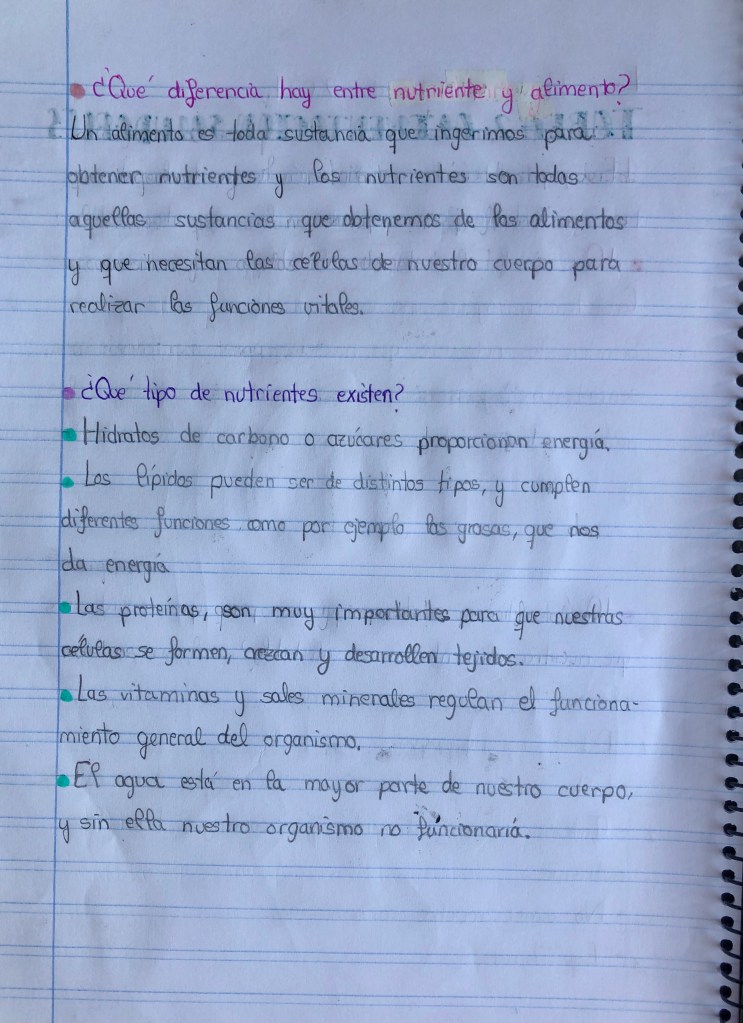 • ¿Qué diferencia hay entre nutriente y alimento?
Un alimento es toda sustancia que ingerimos para
obtener nutrientes y los nutrientes son todas
aquellas sustancias que obtenemos de los alimentos
y que necesitan las celulas de nuestro cuerpo para
realizar las funciones vitales.
• ¿Qué tipo de nutrientes existen?
• Hidratos de carbono o azúcares proporcionan energía.
• Los lípidos pueden ser de distintos tipos, y cumplen
diferentes funciones como por ejemplo las grasas, que nos
da energía
• Las proteínas, son muy importantes para que nuestras
células se formen, crezcan y desarrollen tejidos.
• Las vitaminas y sales minerales regulan el funciona-
miento general del organismo.
• El agua está en la mayor parte de nuestro cuerpo,
y sin ella nuestro organismo no funcionaría.